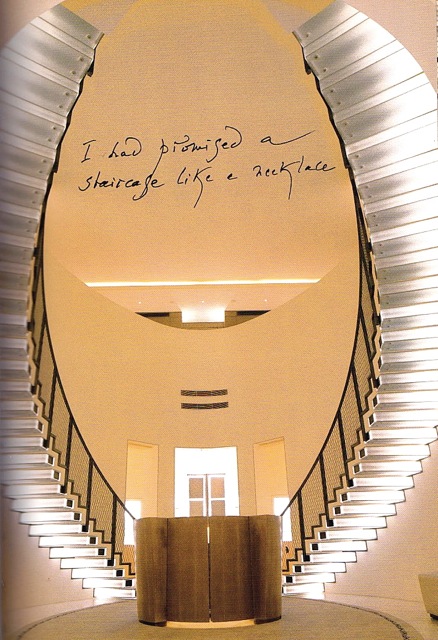 I had promised a
staircase like a necklace